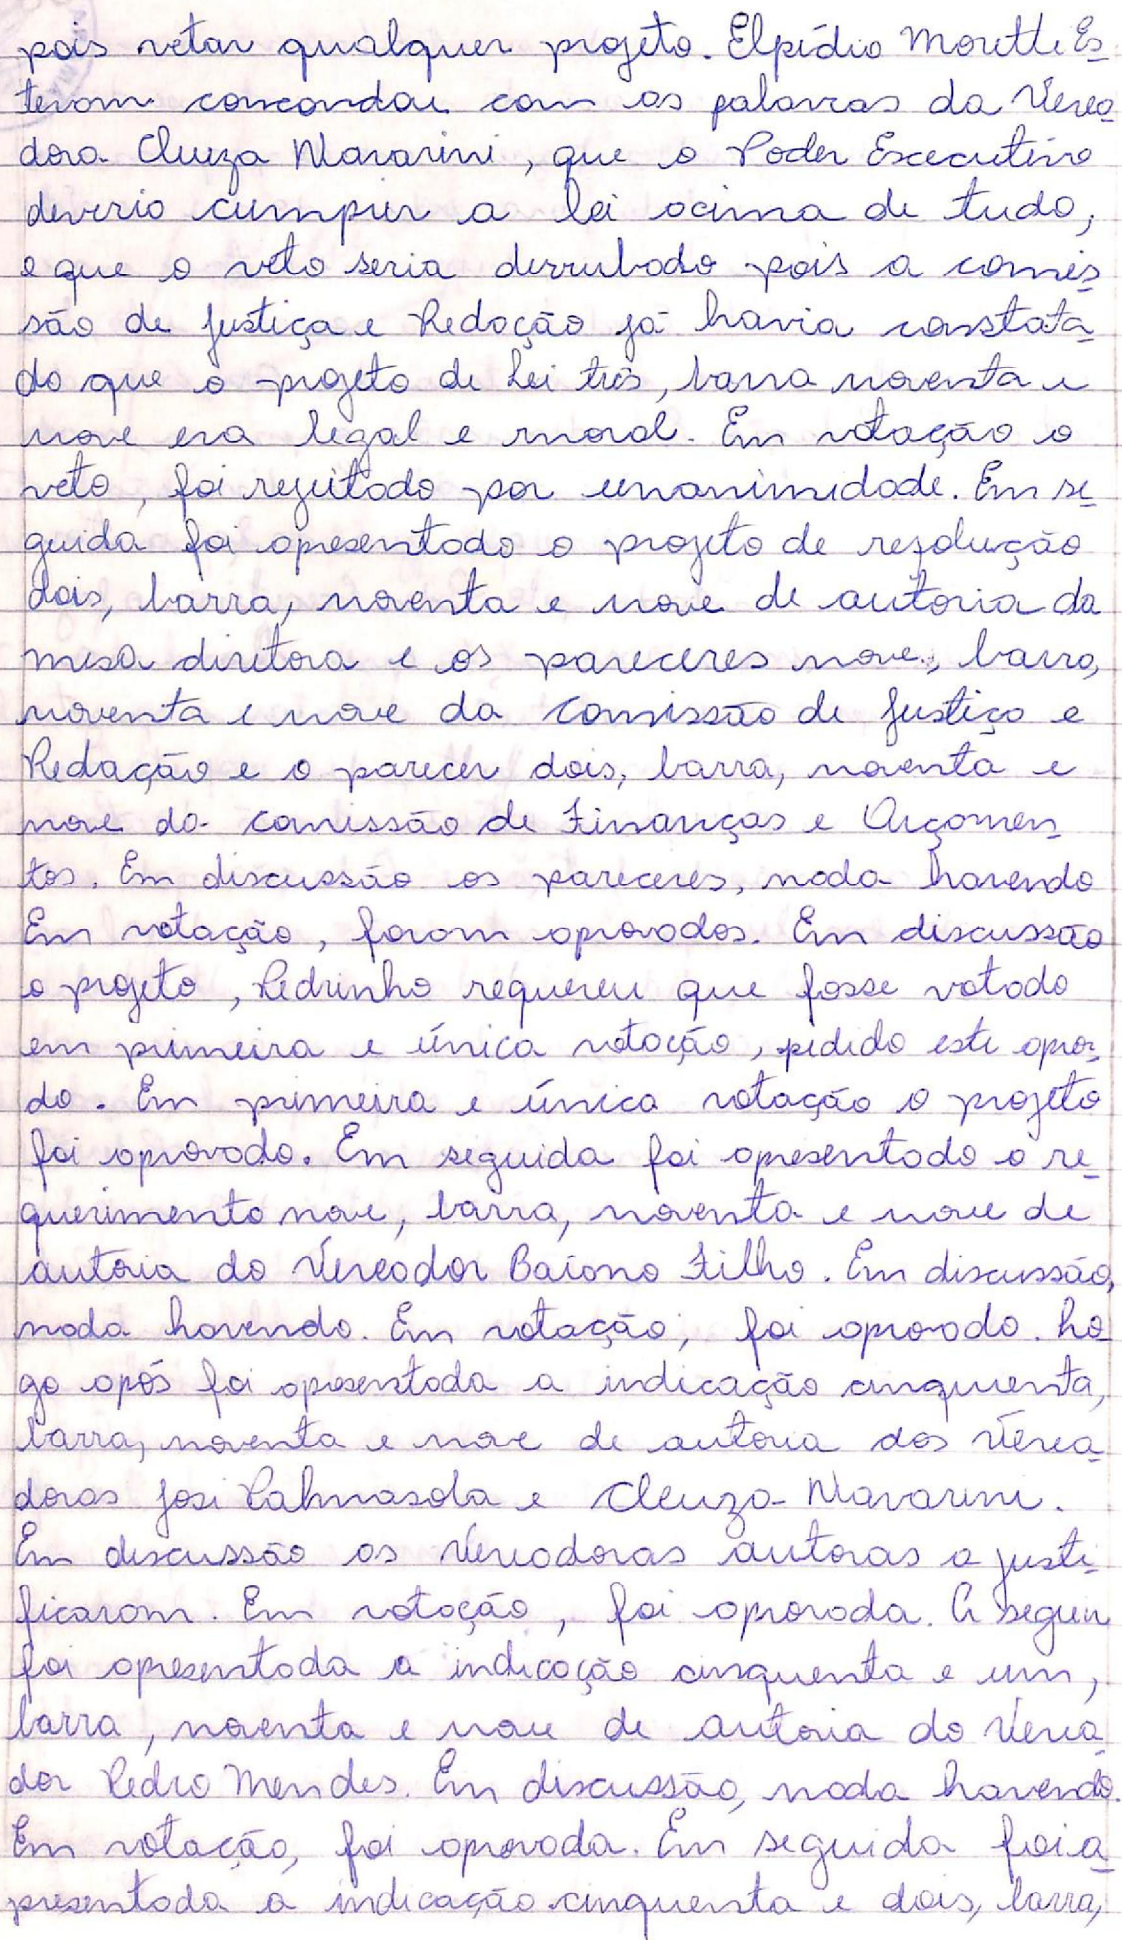 pois vetar qualquer projeto. Elpídio Moretti Es-
tevam concordou com as palavras da Verea-
dora Cleuza Navarini, que o Poder Executivo
deveria cumprir a lei acima de tudo,
e que o veto seria derrubado pois a comis-
são de Justiça e Redação já havia constata-
do que o projeto de Lei três, barra noventa e
nove era legal e moral. Em votação o
veto, foi rejeitado por unanimidade. Em se-
guida foi apresentado o projeto de resolução
dois, barra, noventa e nove de autoria da
mesa diretora e os pareceres nove, barra,
noventa e nove da Comissão de Justiça e
Redação e o parecer dois, barra, noventa e
nove da comissão de Finanças e Orçamen-
tos. Em discussão os pareceres, nada havendo
Em votação, foram aprovados. Em discussão
o projeto, Pedrinho requereu que fosse votado
em primeira e única votação, pedido este apro-
do. Em primeira e única votação o projeto
foi aprovado. Em seguida foi apresentado o re-
querimento nove, barra, noventa e nove de
autoria do Vereador Baiano Filho. Em discussão,
nada havendo. Em votação, foi aprovado. Lo-
go após foi apresentada a indicação cinquenta,
barra, noventa e nove de autoria das Verea-
doras Josi Palmasola e Cleuza Navarini.
Em discussão as Vereadoras autoras a justi-
ficaram. Em votação, foi aprovada. A seguir
foi apresentada a indicação cinquenta e um,
barra, noventa e nove de autoria do Verea-
dor Pedro Mendes. Em discussão, nada havendo.
Em votação, foi aprovada. Em seguida foi a-
presentada a indicação cinquenta e dois, barra,